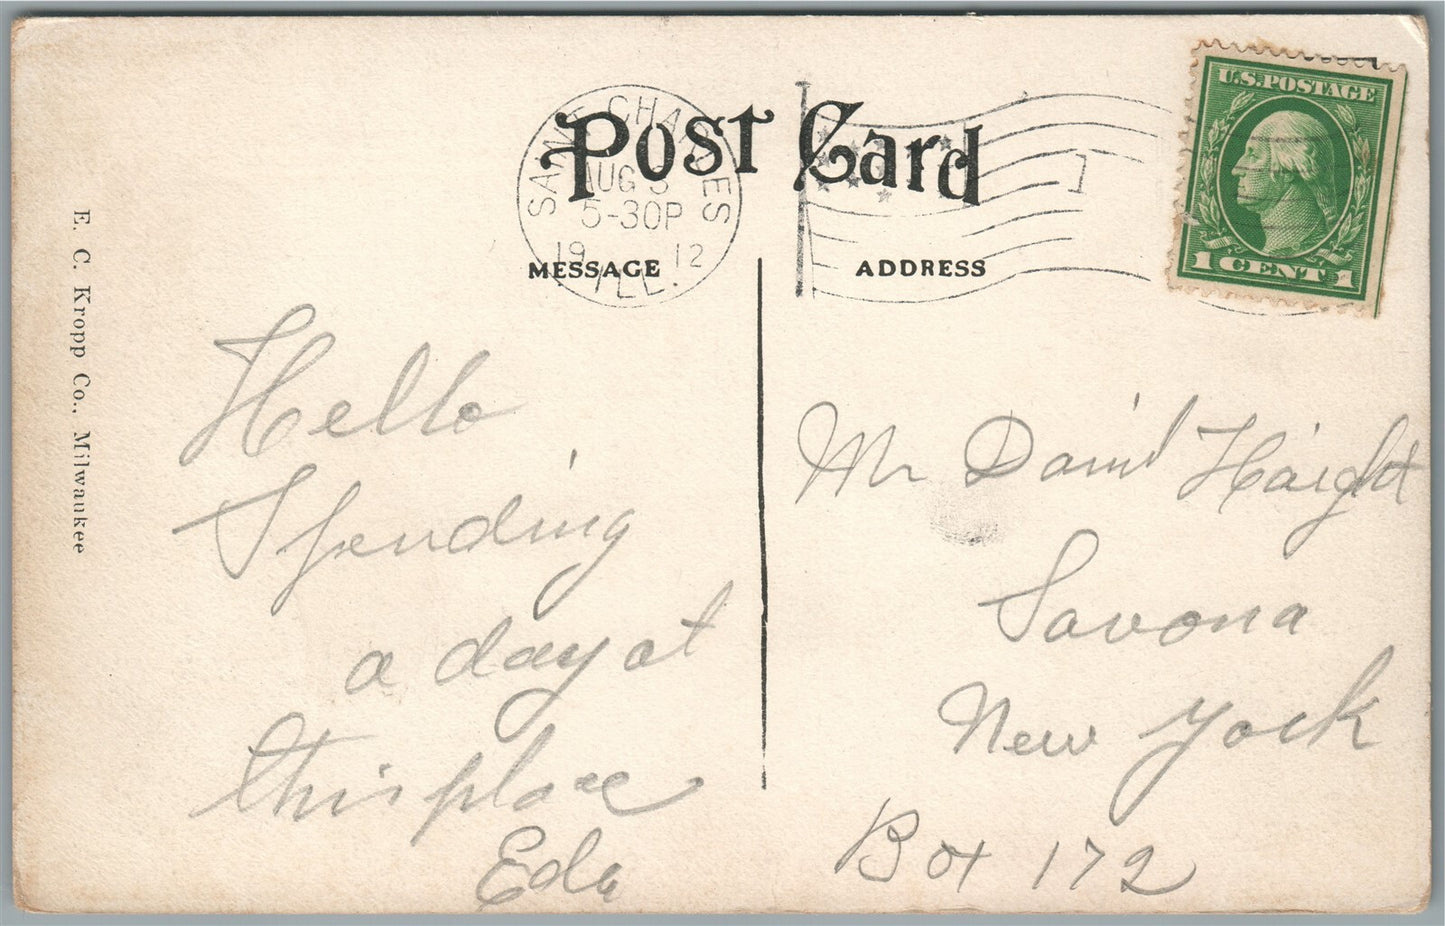 Post Card
SAINT CHARLES
AUG 3
5-30P
1912
ILL.
1
U.S.POSTAGE
1 CENT 1
MESSAGE
ADDRESS
E. C. Kropp Co., Milwaukee
Hello
Spending
a day at
this place
Eda
Mr David Haight
Savona
New York
Box 172